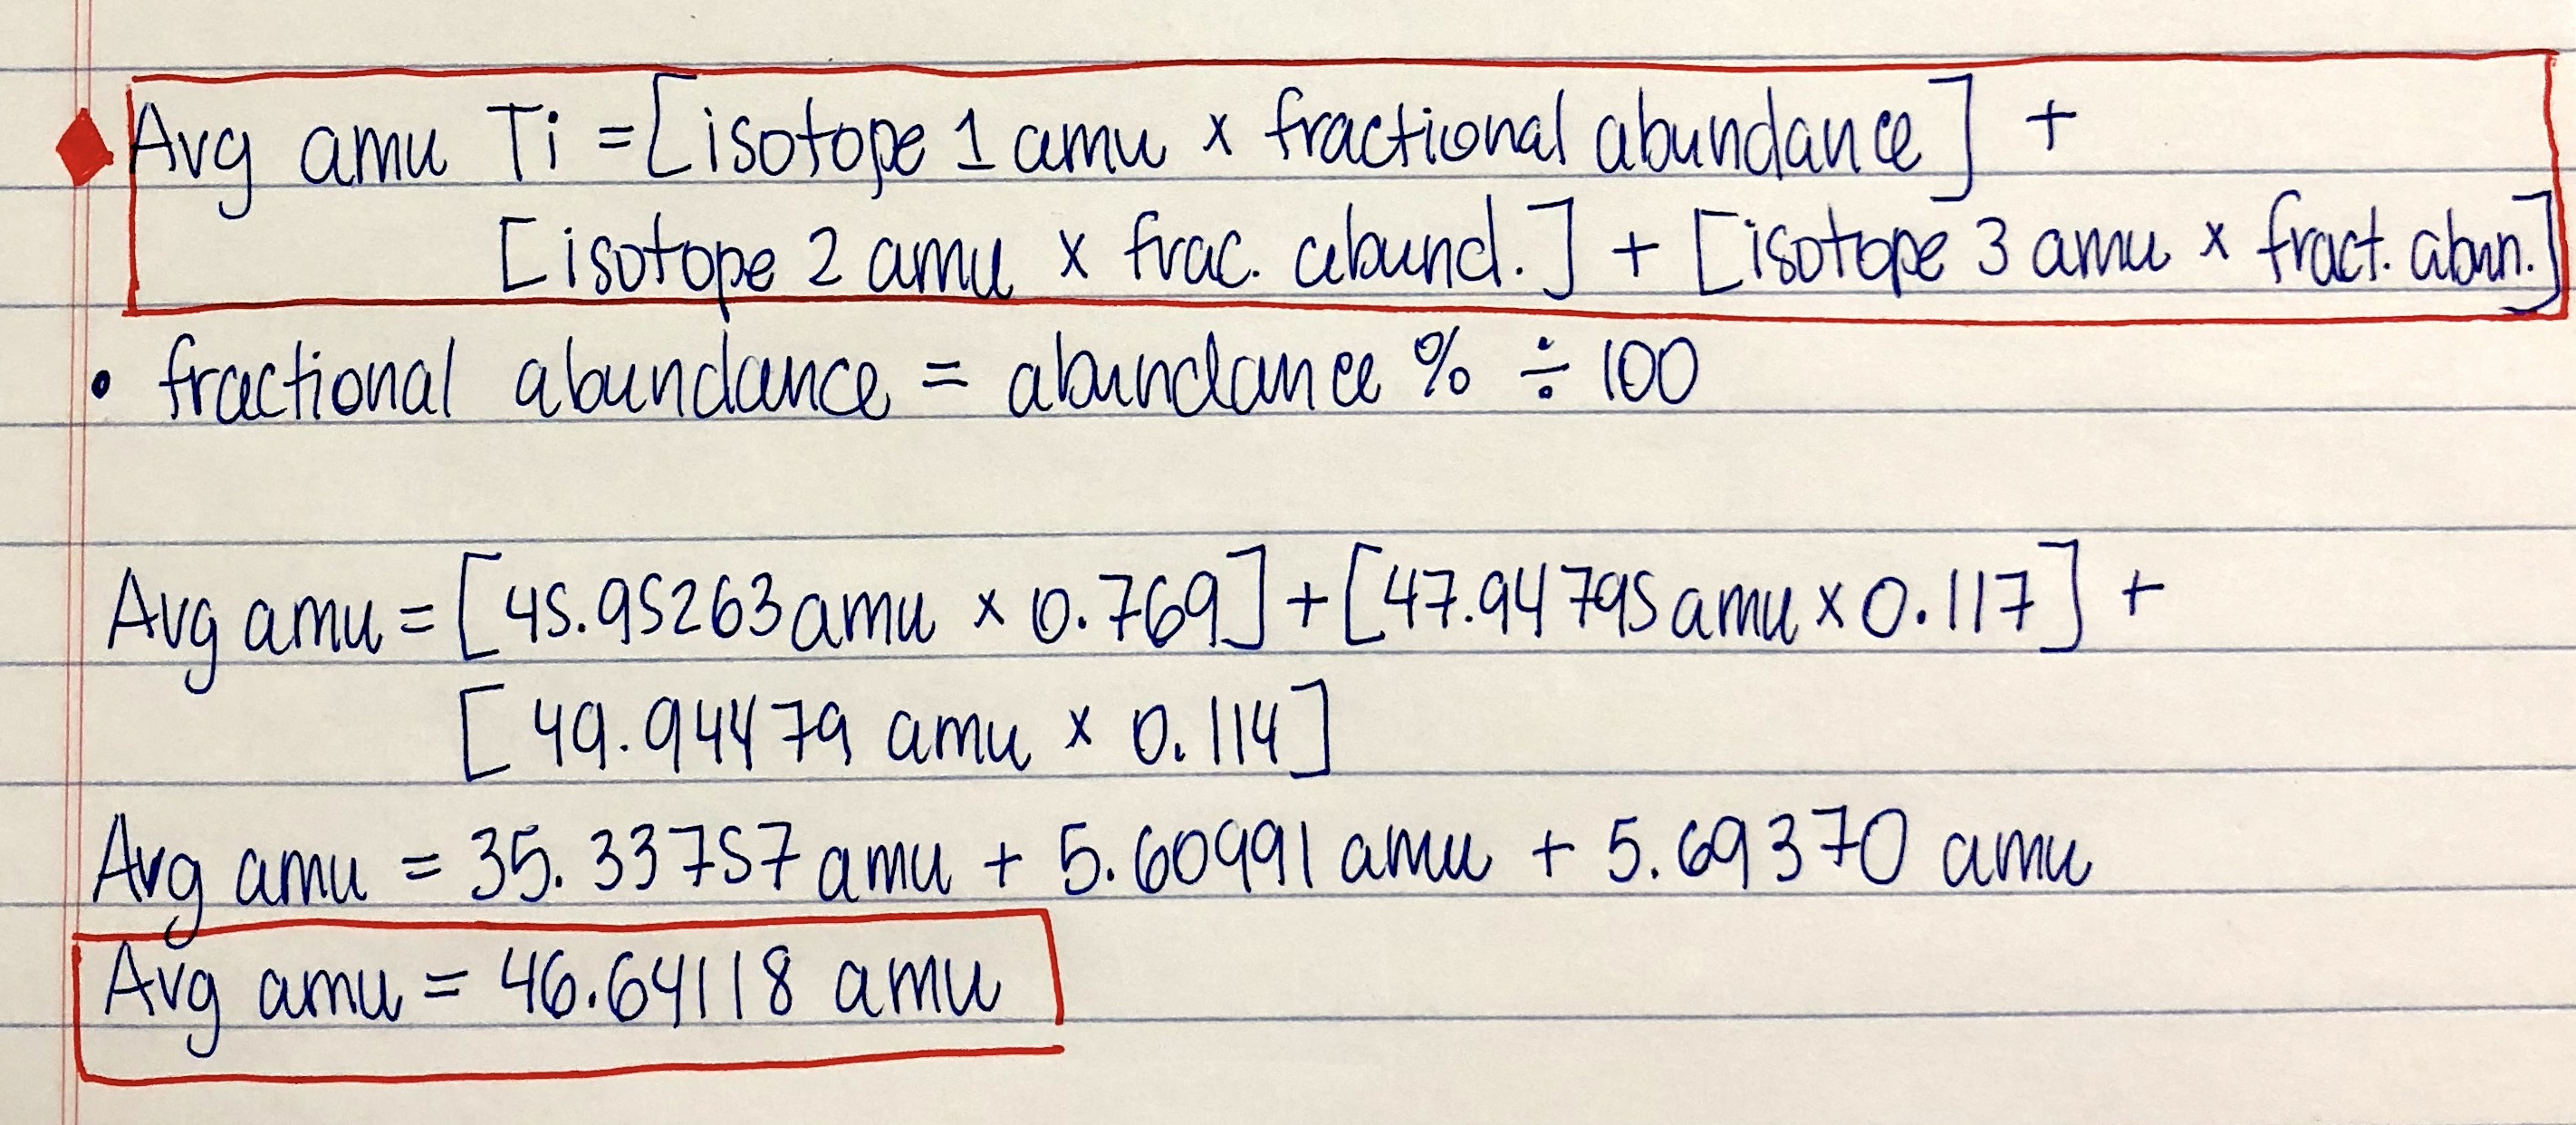 Avg amu Ti = [isotope 1 amu x fractional abundance] +
[isotope 2 amu x frac. abund.] + [isotope 3 amu x fract. abun.]
• fractional abundance = abundance % ÷ 100
Avg amu = [45.95263 amu x 0.769] + [47.94795 amu x 0.117] +
[49.94479 amu x 0.114]
Avg amu = 35.33757 amu + 5.60991 amu + 5.69370 amu
Avg amu = 46.64118 amu